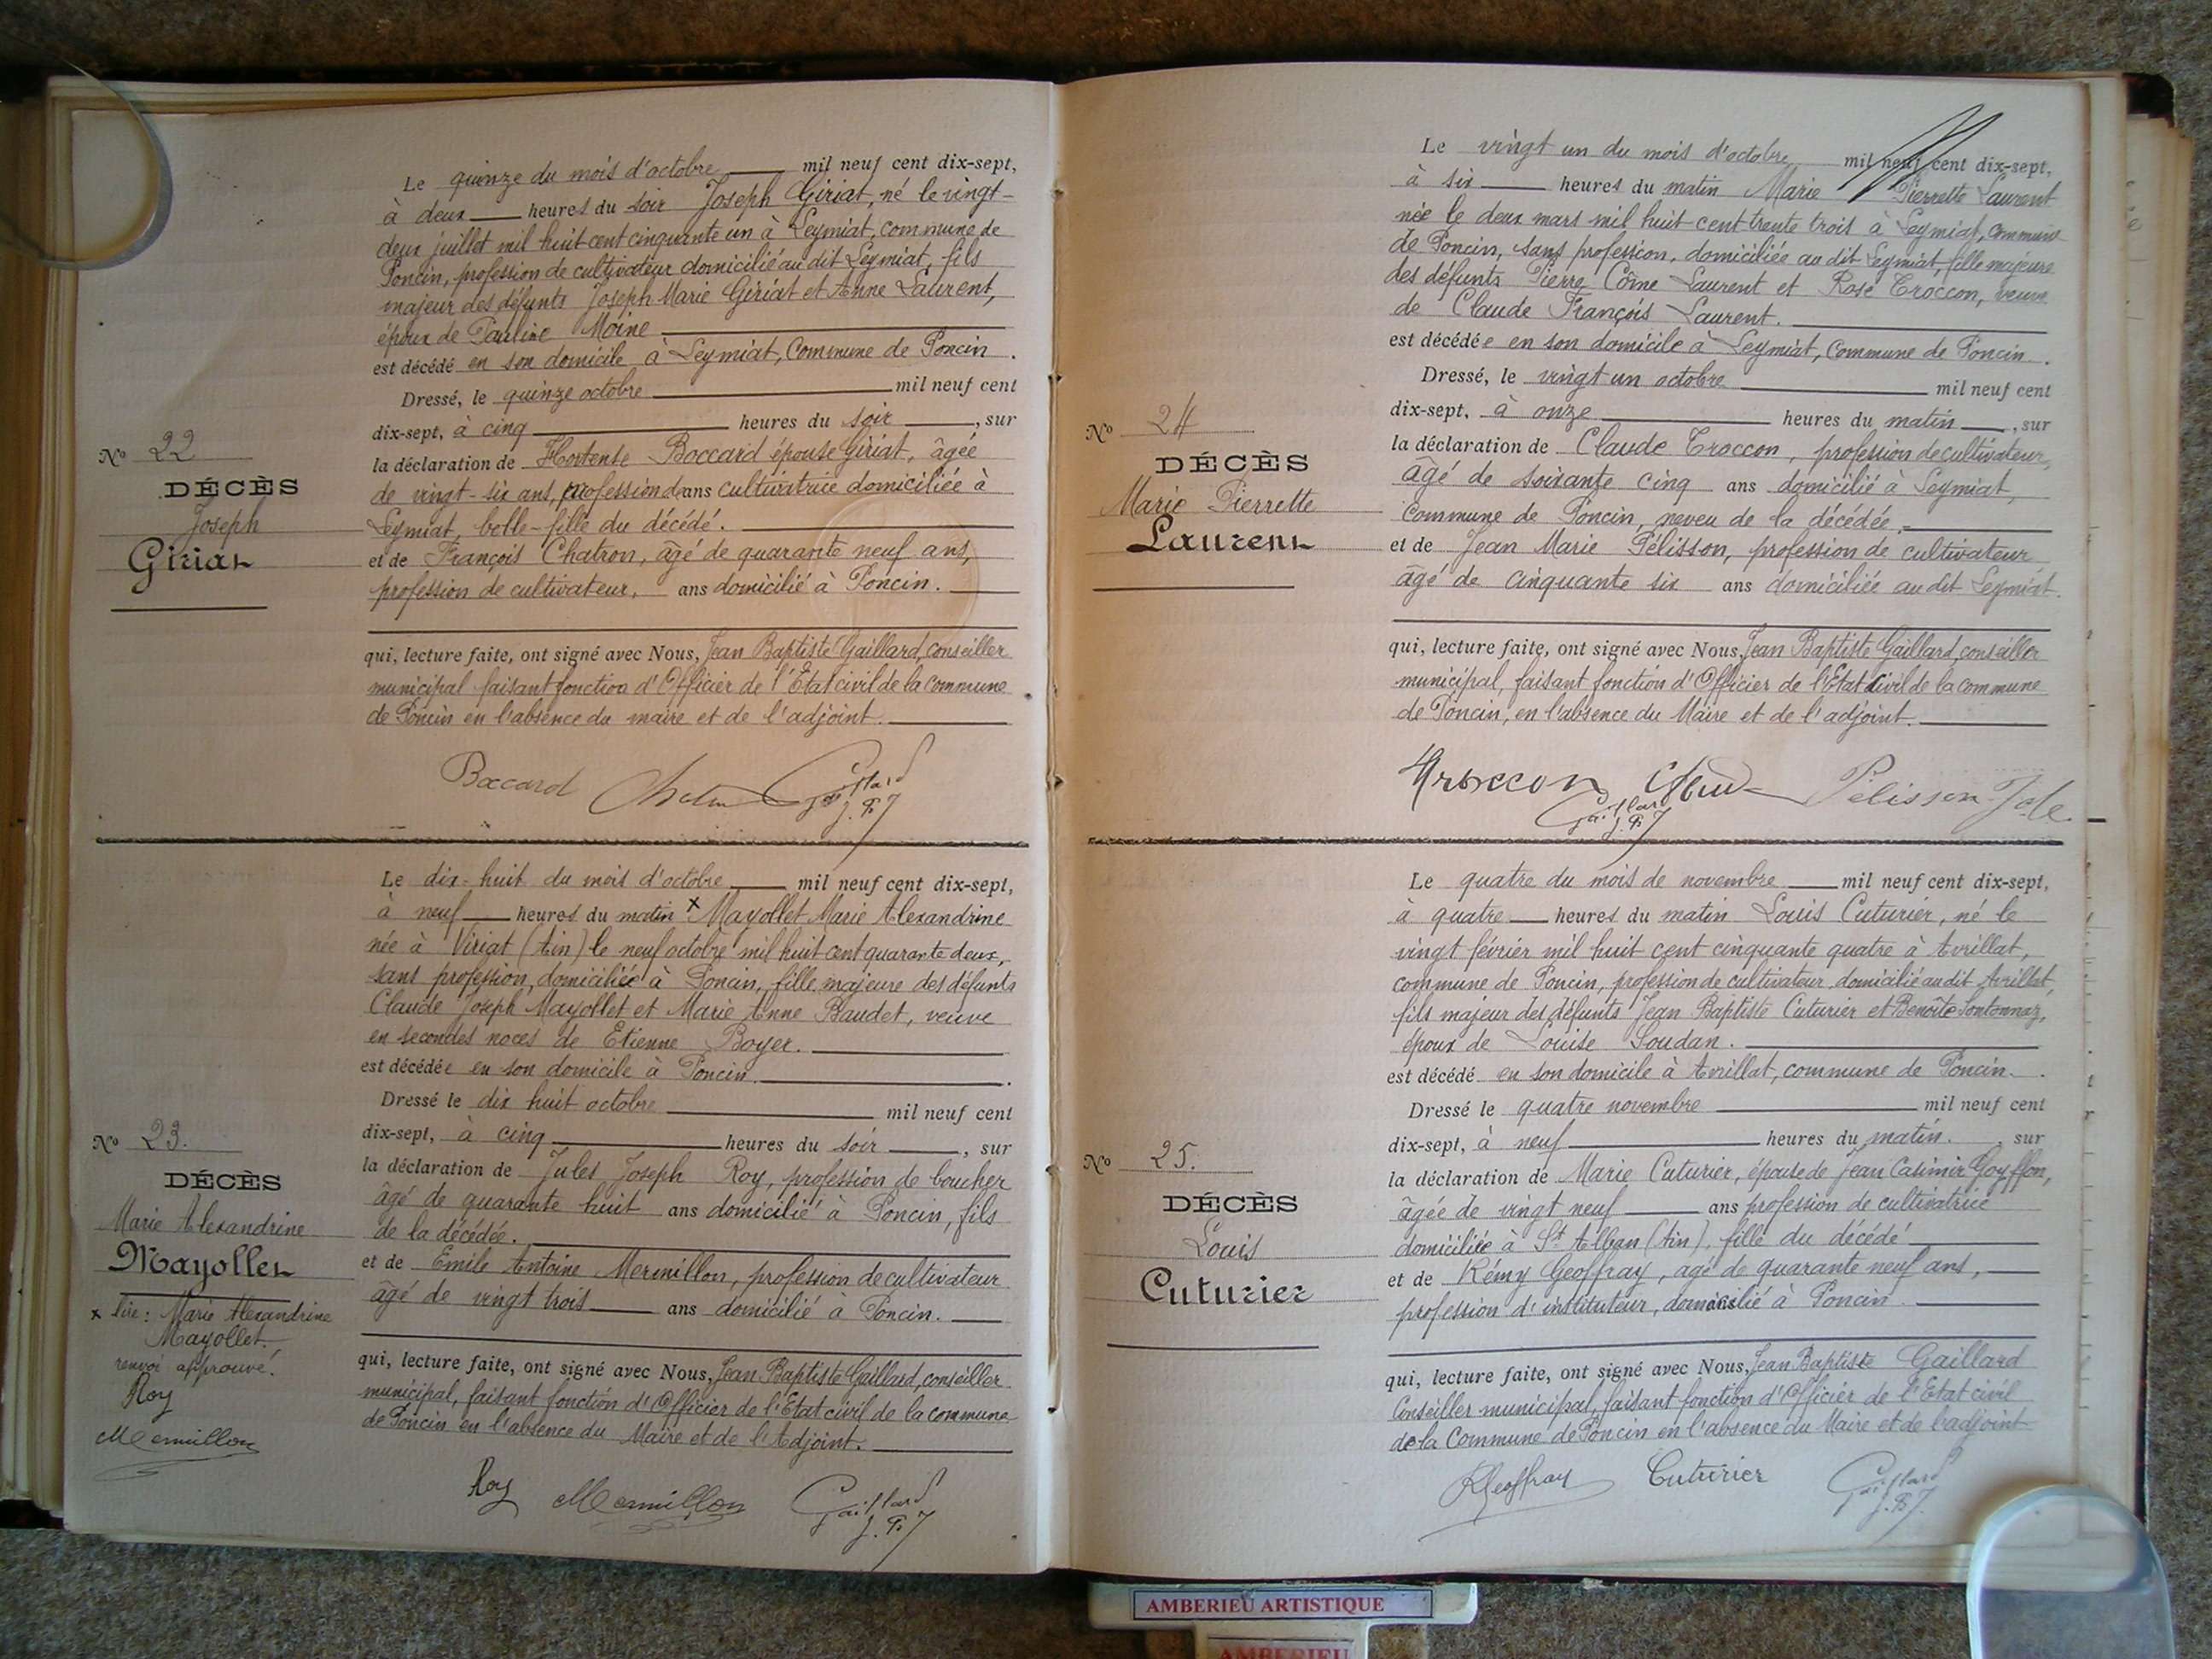 Le quinze du mois d'octobre mil neuf cent dix-sept,
à deux heures du soir Joseph Giriat, né le vingt-
deux juillet mil huit cent cinquante un à Leymiat, commune de
Poncin, profession de cultivateur domicilié au dit Leymiat, fils
majeur des défunts Joseph Marie Giriat et Anne Laurent,
époux de Pauline Moine
est décédé en son domicile à Leymiat, Commune de Poncin.
Dressé, le quinze octobre mil neuf cent
dix-sept, à cinq heures du soir, sur
la déclaration de Hortense Boccard épouse Giriat, âgée
de vingt-six ans, profession dans cultivatrice domiciliée à
Leymiat, belle-fille du décédé.
et de François Chatron, âgé de quarante neuf ans,
profession de cultivateur, ans domicilié à Poncin.
qui, lecture faite, ont signé avec Nous, Jean Baptiste Gaillard, conseiller
municipal faisant fonction d'Officier de l'Etat civil de la commune
de Poncin en l'absence du maire et de l'adjoint.
N° 22
DÉCÈS
Joseph
Giriat
Boccard Gaillard J.B
Le dix-huit du mois d'octobre mil neuf cent dix-sept,
à neuf heures du matin x Mayollet Marie Alexandrine
née à Viriat (Ain) le neuf octobre mil huit cent quarante deux,
sans profession, domiciliée à Poncin, fille majeure des défunts
Claude Joseph Mayollet et Marie Anne Baudet, veuve
en secondes noces de Etienne Boyer.
est décédée en son domicile à Poncin.
Dressé le dix huit octobre mil neuf cent
dix-sept, à cinq heures du soir, sur
la déclaration de Jules Joseph Roy, profession de boucher
âgé de quarante huit ans domicilié à Poncin, fils
de la décédée.
et de Emile Antoine Mermillon, profession de cultivateur
âgé de vingt trois ans domicilié à Poncin.
qui, lecture faite, ont signé avec Nous, Jean Baptiste Gaillard, conseiller
municipal, faisant fonction d'Officier de l'Etat civil de la commune
de Poncin en l'absence du Maire et de l'Adjoint.
N° 23.
DÉCÈS
Marie Alexandrine
Mayollet
x lire: Marie Alexandrine
Mayollet.
renvoi approuvé.
Roy
Mermillon
Roy Mermillon Gaillard J.B
Le vingt un du mois d'octobre mil neuf cent dix-sept,
à six heures du matin Marie Pierrette Laurent
née le deux mars mil huit cent trente trois à Leymiat, commune
de Poncin, sans profession, domiciliée au dit Leymiat, fille majeure
des défunts Pierre Côme Laurent et Rose Troccon, veuve
de Claude François Laurent.
est décédée en son domicile à Leymiat, Commune de Poncin.
Dressé, le vingt un octobre mil neuf cent
dix-sept, à onze heures du matin, sur
la déclaration de Claude Troccon, profession de cultivateur,
âgé de soixante cinq ans domicilié à Leymiat,
Commune de Poncin, neveu de la décédée.
et de Jean Marie Pélisson, profession de cultivateur
âgé de cinquante six ans domiciliée au dit Leymiat.
qui, lecture faite, ont signé avec Nous, Jean Baptiste Gaillard, conseiller
municipal, faisant fonction d'Officier de l'Etat Civil de la commune
de Poncin, en l'absence du Maire et de l'adjoint.
N° 24
DÉCÈS
Marie Pierrette
Laurent
Troccon Pélisson
Gaillard J.B
Le quatre du mois de novembre mil neuf cent dix-sept,
à quatre heures du matin Louis Cuturier, né le
vingt février mil huit cent cinquante quatre à Avrillat,
commune de Poncin, profession de cultivateur, domicilié au dit Avrillat,
fils majeur des défunts Jean Baptiste Cuturier et Benoîte Sontonnaz,
époux de Louise Soudan.
est décédé en son domicile à Avrillat, commune de Poncin.
Dressé le quatre novembre mil neuf cent
dix-sept, à neuf heures du matin, sur
la déclaration de Marie Cuturier, épouse de Jean Casimir Goyffon,
âgée de vingt neuf ans profession de cultivatrice
domiciliée à St Alban (Ain), fille du décédé
et de Rémy Geoffray, agé de quarante neuf ans,
profession d'instituteur, domicilié à Poncin
qui, lecture faite, ont signé avec Nous, Jean Baptiste Gaillard
Conseiller municipal, faisant fonction d'Officier de l'Etat civil
de la Commune de Poncin en l'absence du Maire et de l'adjoint
N° 25.
DÉCÈS
Louis
Cuturier
RGeoffray Cuturier Gaillard J.B.
AMBERIEU ARTISTIQUE
AMBERIEU